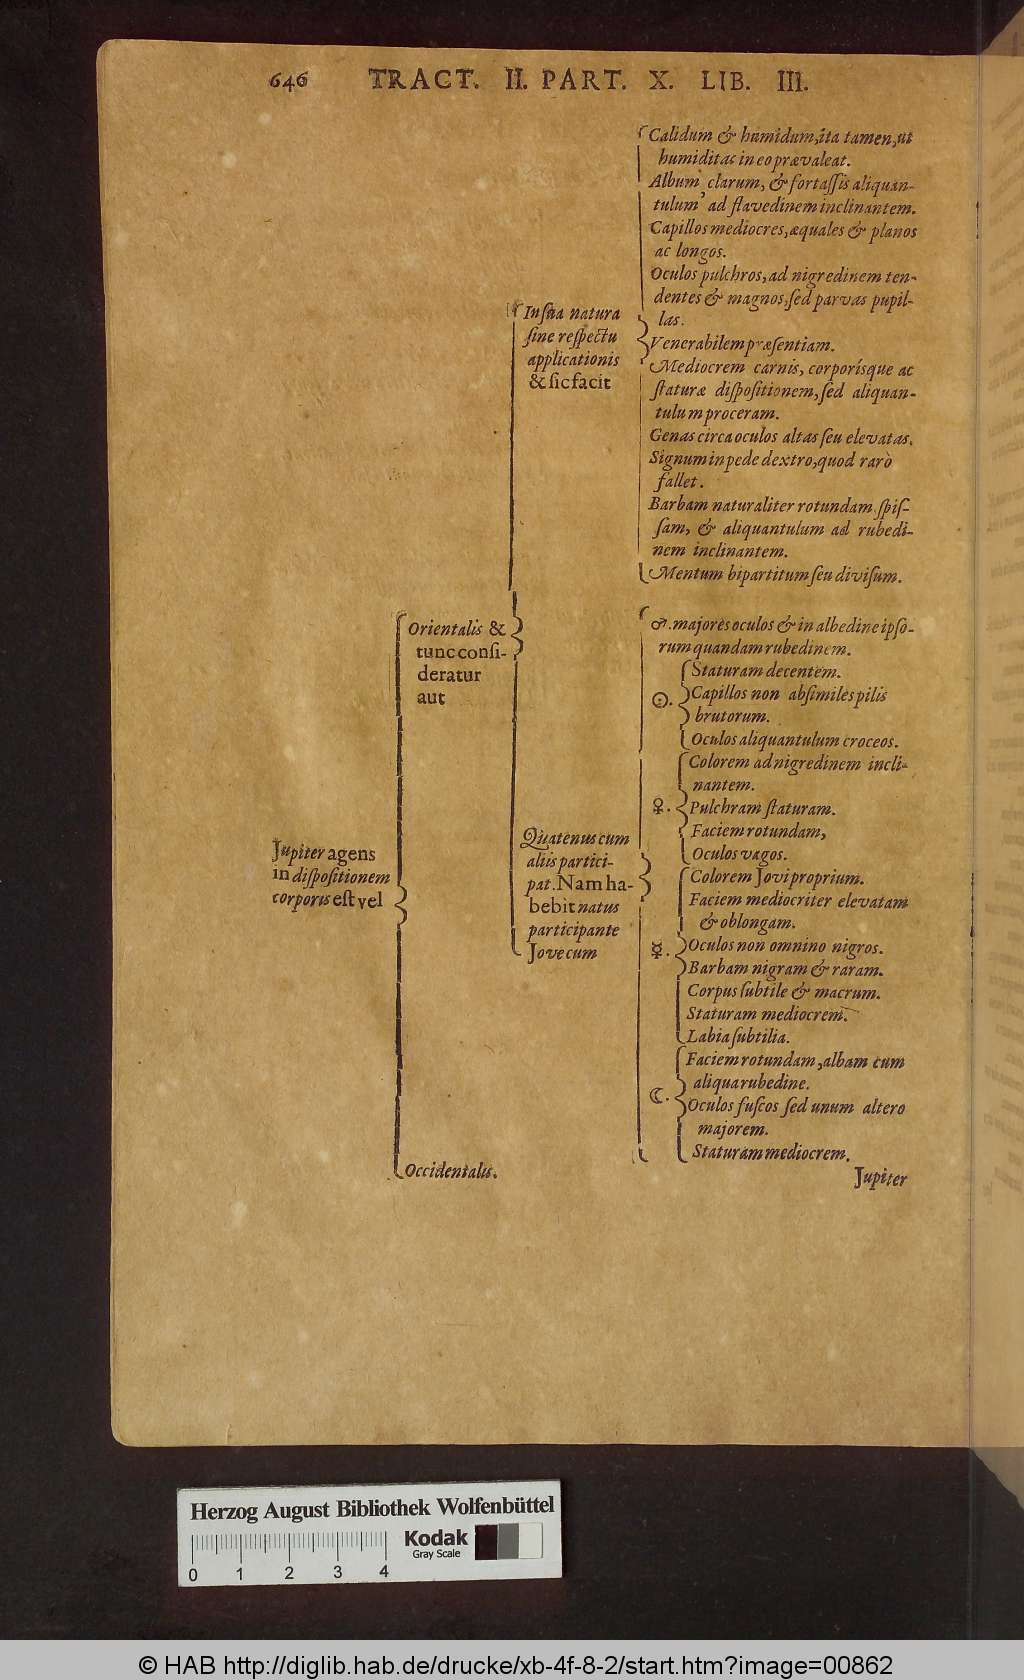 646 TRACT. II. PART. X. LIB. III.
Jupiter agens
in dispositionem
corporis est vel
Orientalis &
tunc consi-
deratur
aut
In sua natura
sine respectu
applicationis
& sic facit
Calidum & humidum, ita tamen, ut
humiditas in eo prævaleat.
Album, clarum, & fortassis aliquan-
tulum ad flavedinem inclinantem.
Capillos mediocres, æquales & planos
ac longos.
Oculos pulchros, ad nigredinem ten-
dentes & magnos, sed parvas pupil-
las.
Venerabilem præsentiam.
Mediocrem carnis, corporísque ac
staturæ dispositionem, sed aliquan-
tulum proceram.
Genas circa oculos altas seu elevatas.
Signum in pede dextro, quod rarò
fallet.
Barbam naturaliter rotundam, spis-
sam, & aliquantulum ad rubedi-
nem inclinantem.
Mentum bipartitum seu divisum.
Quatenus cum
aliis partici-
pat. Nam ha-
bebit natus
participante
Jove cum
♂. majores oculos & in albedine ipso-
rum quandam rubedinem.
☉.
Staturam decentem.
Capillos non absimiles pilis
brutorum.
Oculos aliquantulum croceos.
♀.
Colorem ad nigredinem incli-
nantem.
Pulchram staturam.
Faciem rotundam,
Oculos vagos.
☿.
Colorem Jovi proprium.
Faciem mediocriter elevatam
& oblongam.
Oculos non omnino nigros.
Barbam nigram & raram.
Corpus subtile & macrum.
Staturam mediocrem.
Labia subtilia.
☾.
Faciem rotundam, albam cum
aliqua rubedine.
Oculos fuscos sed unum altero
majorem.
Staturam mediocrem.
Occidentalis.
Jupiter
Herzog August Bibliothek Wolfenbüttel
Kodak
Gray Scale
0 1 2 3 4
© HAB http://diglib.hab.de/drucke/xb-4f-8-2/start.htm?image=00862